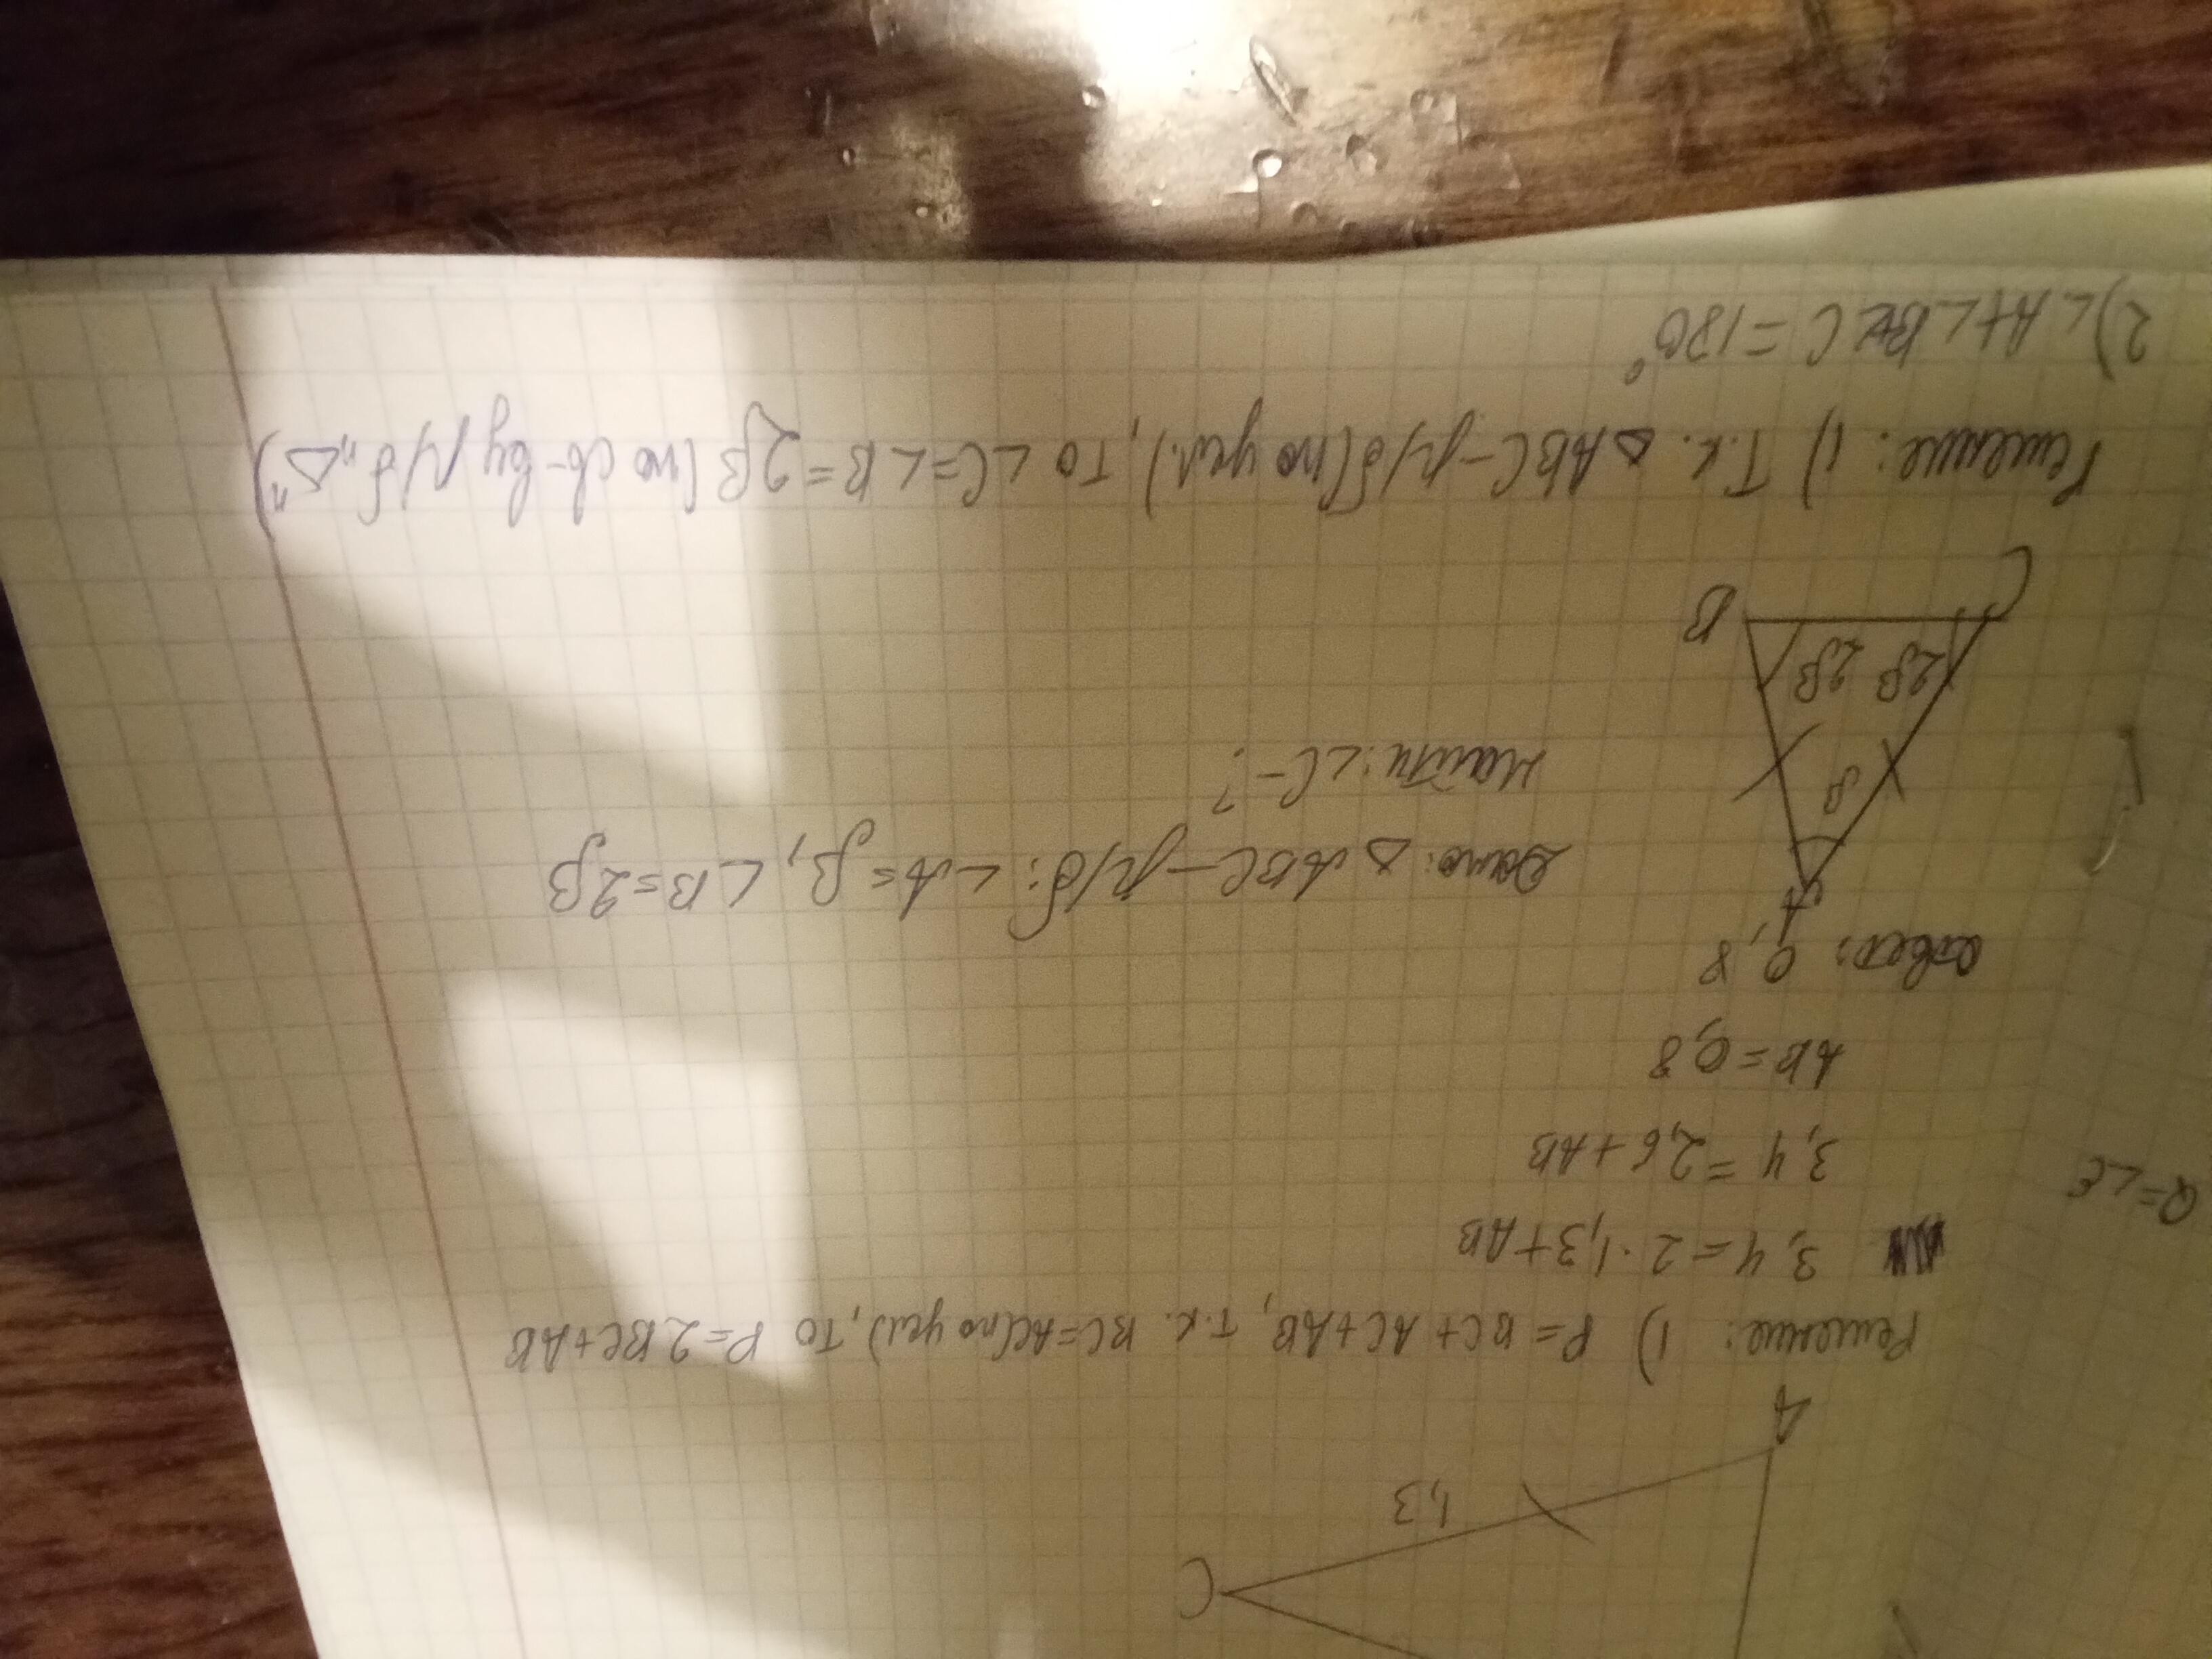 C
1,3
A
Решение: 1) P = BC + AC + AB, т.к. BC = AC (по усл), то P = 2BC + AB
3,4 = 2·1,3 + AB
3,4 = 2,6 + AB
AB = 0,8
Ответ: 0,8
A
Дано: △ABC – р/б: ∠A = β, ∠B = 2β
Найти: ∠C – ?
β
2β 2β
C B
Решение: 1) Т.к. △ABC – р/б (по усл.), то ∠C = ∠B = 2β (по св-ву р/б „△")
2) ∠A + ∠B + ∠C = 180°
= ∠E